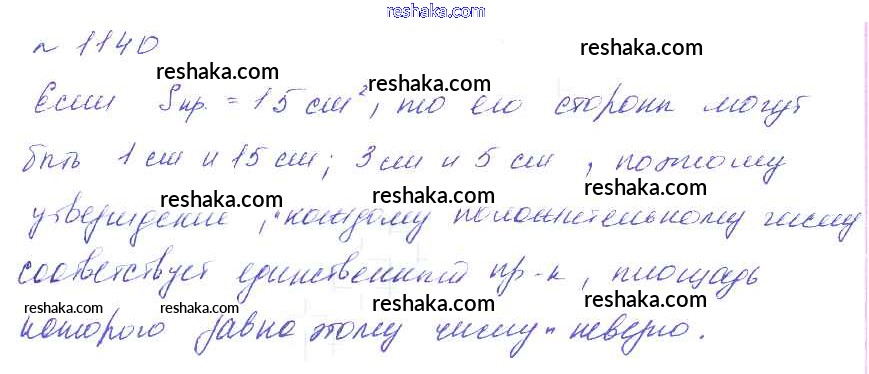 reshaka.com
№ 1140
reshaka.com
reshaka.com
reshaka.com
Если Sпр. = 15 см², то его стороны могут
reshaka.com
быть 1 см и 15 см; 3 см и 5 см, поэтому
reshaka.com reshaka.com reshaka.com
утверждение „каждому положительному числу
reshaka.com reshaka.com
соответствует единственный пр-к, площадь
reshaka.com reshaka.com reshaka.com reshaka.com
которого равно этому числу" неверно.
reshaka.com